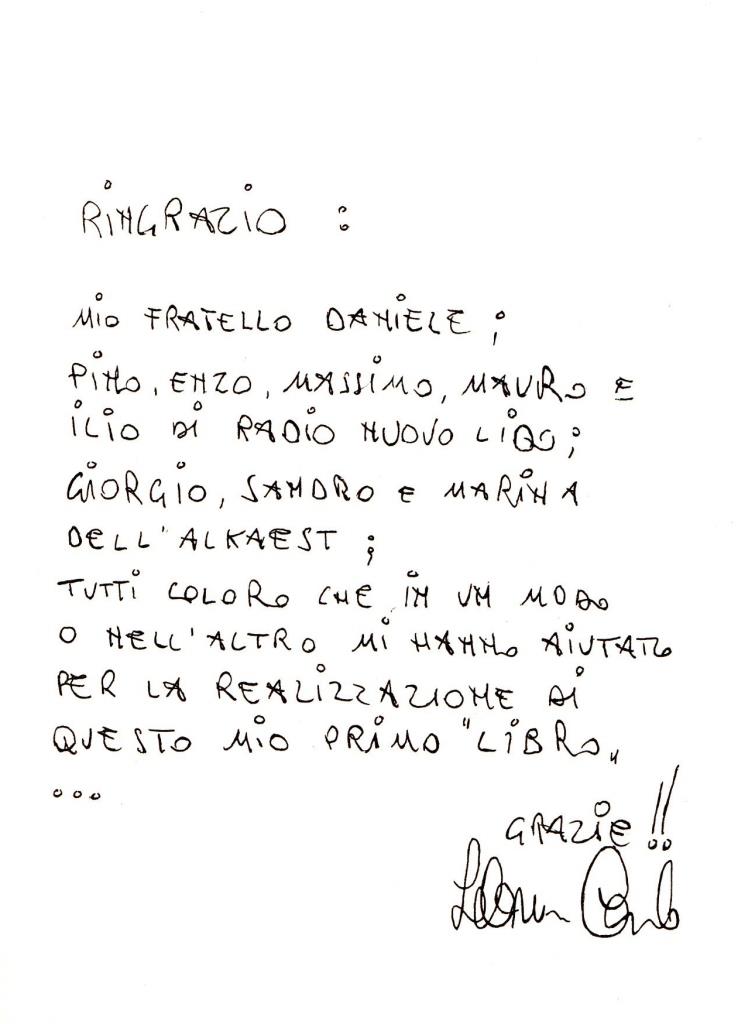 RINGRAZIO :
MIO FRATELLO DANIELE ;
PINO, ENZO, MASSIMO, MAURO E
ILIO DI RADIO NUOVO LIDO;
GIORGIO, SANDRO E MARINA
DELL'ALKAEST ;
TUTTI COLORO CHE IN UN MODO
O NELL'ALTRO MI HANNO AIUTATO
PER LA REALIZZAZIONE DI
QUESTO MIO PRIMO "LIBRO„
...
GRAZIE !!